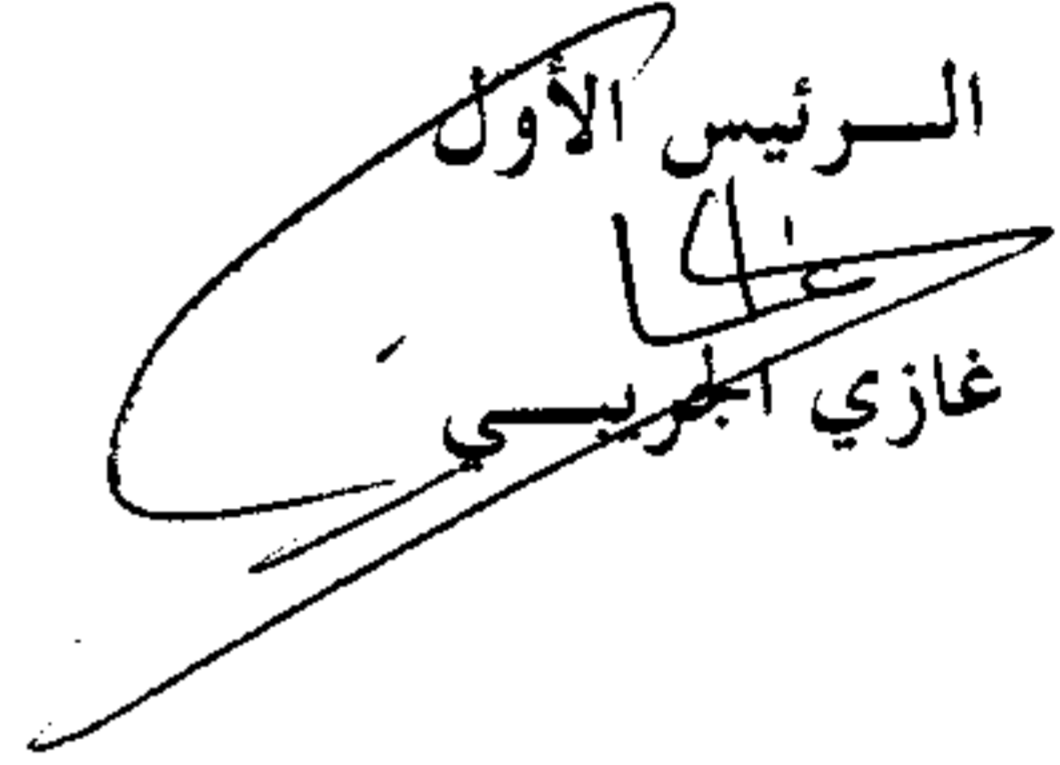 الرئيس الأول
غازي الجريبي